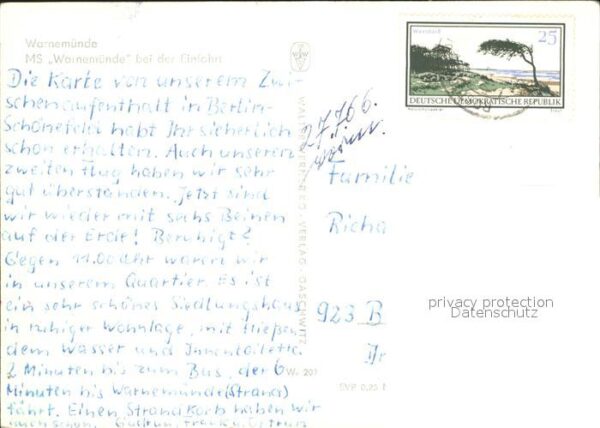 Warnemünde
MS „Warnemünde" bei der Einfahrt
Die Karte von unserem Zwi-
schenaufenthalt in Berlin-
Schönefeld habt Ihr sicherlich
schon erhalten. Auch unseren
zweiten Flug haben wir sehr
gut überstanden. Jetzt sind
wir wieder mit sechs Beinen
auf der Erde! Beruhigt?
Gegen 11.00 Uhr waren wir
in unserem Quartier. Es ist
ein sehr schönes Siedlungshaus
in ruhiger Wohnlage, mit fließen
dem Wasser und Innentoilette.
2 Minuten bis zum Bus, der 6
Minuten bis Warnemünde (Strand)
fährt. Einen Strandkorb haben wir
schon. Gudrun, Frank u.
VERLAG · GASCHWITZ
27.7.66.
Familie
Richa
923 B
25
DEUTSCHE DEMOKRATISCHE REPUBLIK
privacy protection
Datenschutz
EVP 0,25